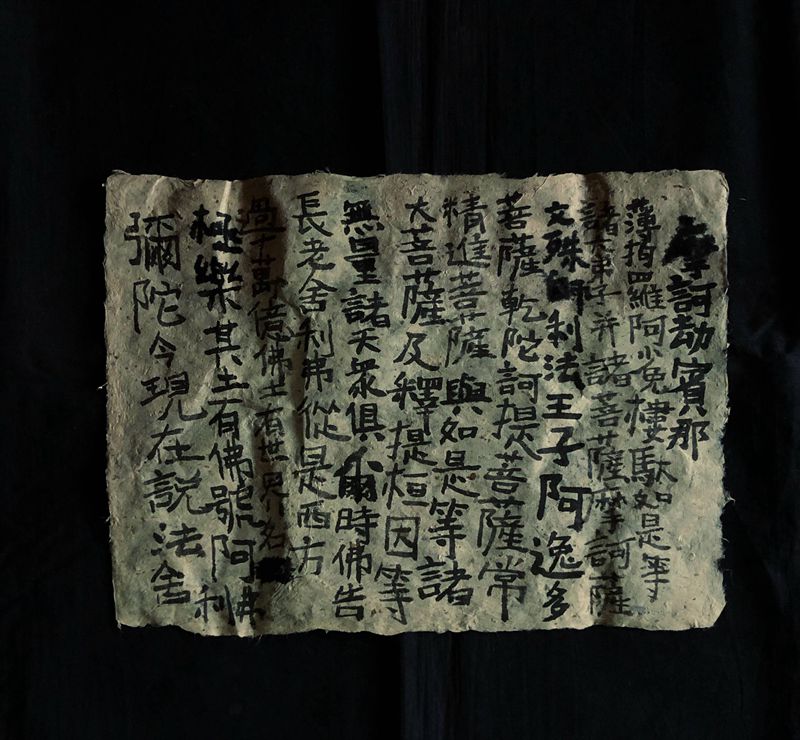 摩訶劫賓那
薄拘羅阿㝹樓馱如是等
諸大弟子并諸菩薩摩訶薩
文殊師利法王子阿逸多
菩薩乾陀訶提菩薩常
精進菩薩與如是等諸
大菩薩及釋提桓因等
無量諸天衆俱爾時佛告
長老舍利弗從是西方
過十萬億佛土有世界名
極樂其土有佛號阿
彌陀今現在說法舍
利弗